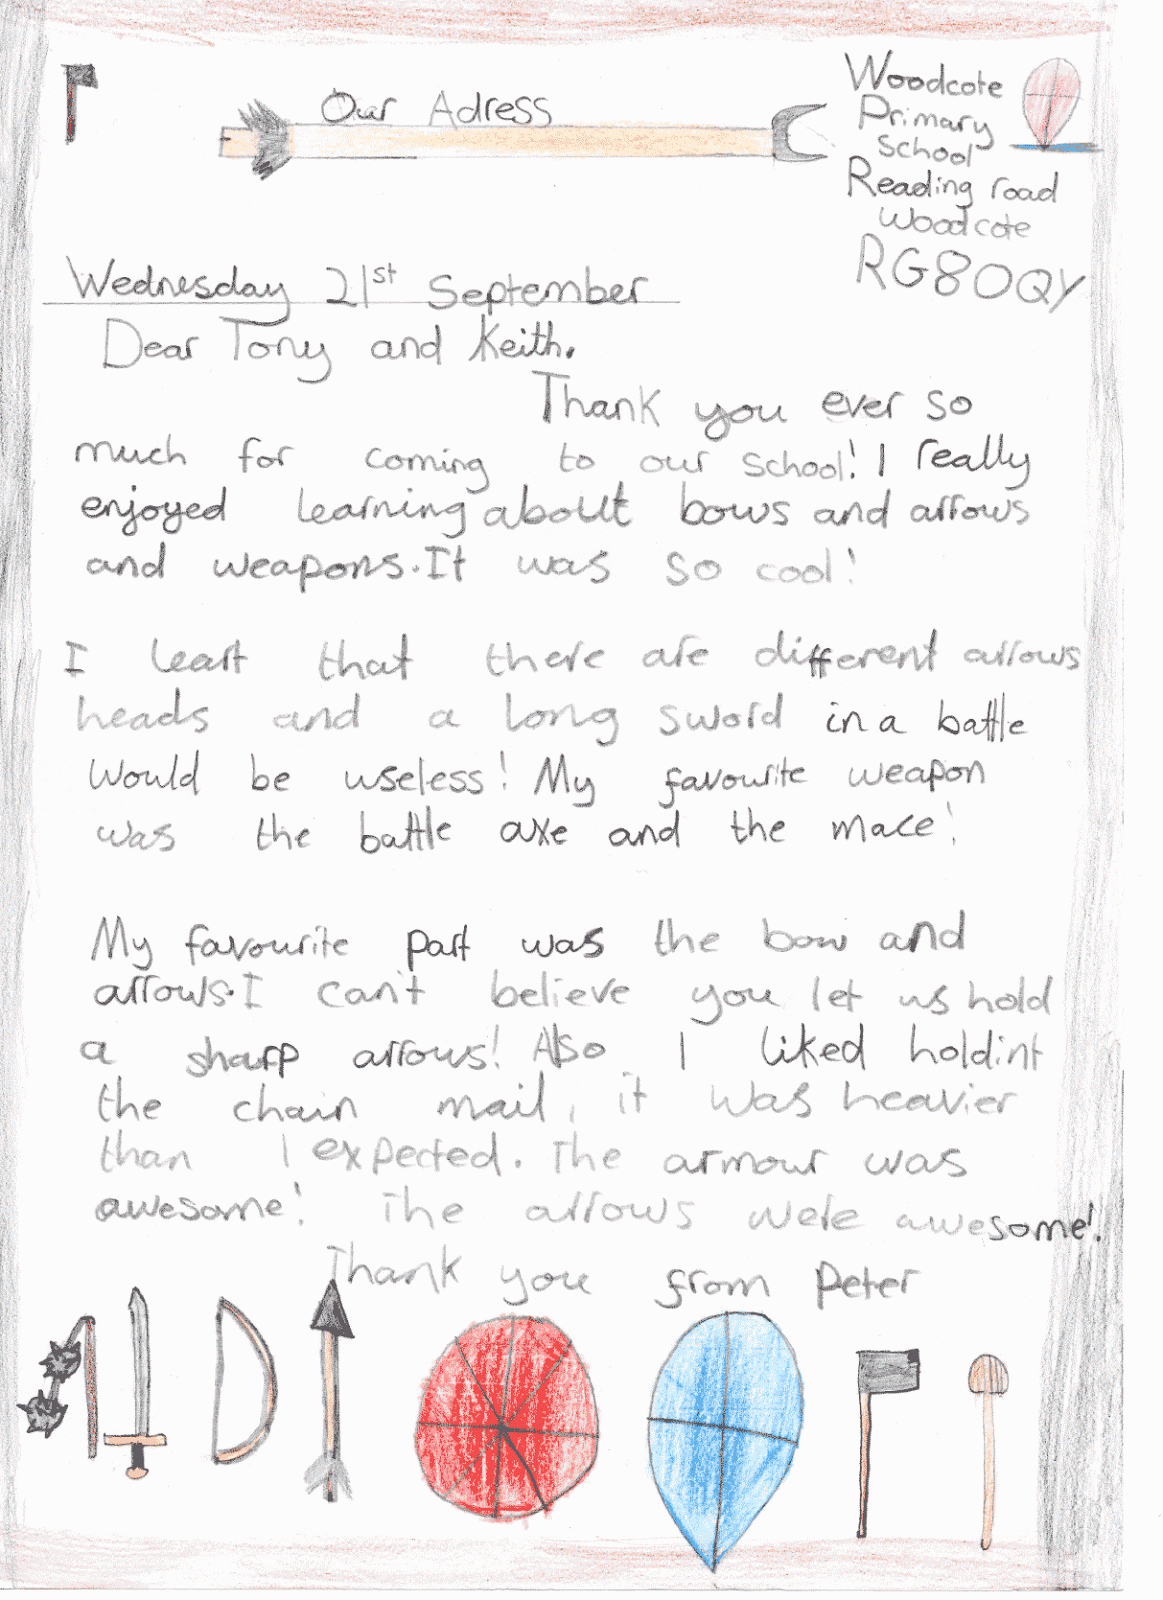 Our Adress
Woodcote
Primary
School
Reading road
Woodcote
RG8 0QY
Wednesday 21st September
Dear Tony and Keith.
Thank you ever so
much for coming to our school! I really
enjoyed learning about bows and arrows
and weapons. It was so cool!
I leart that there are different arrows
heads and a long sword in a battle
would be useless! My favourite weapon
was the battle axe and the mace!
My favourite part was the bow and
arrows. I can't believe you let us hold
a sharp arrows! Also I liked holdint
the chain mail, it was heavier
than I expected. The armour was
awesome! The arrows were awesome!
Thank you from Peter